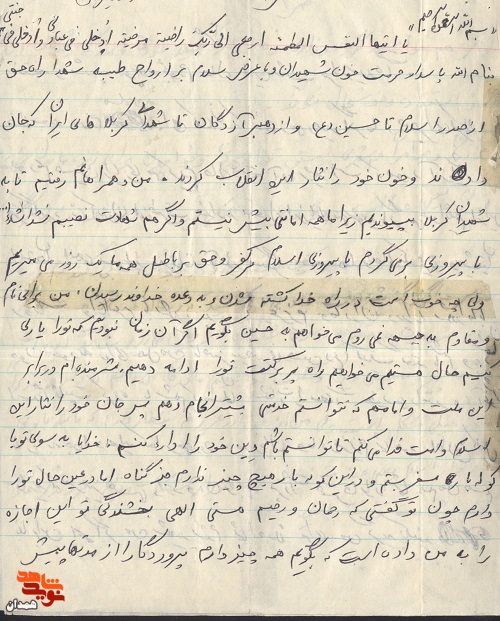 «بسم الله الرحمن الرحیم»
یا ایتها النفس المطمئنه ارجعی الی ربک راضیة مرضیة فادخلی فی عبادی وادخلی فی جنتی
بنام الله پاسدار حرمت خون شهیدان و با عرض سلام بر ارواح طیبه شهدا راه حق
از صدر اسلام تا حسین (ع) و از رهبر آزدگان تا شهدا کربلا های ایران که جان
داد ند و خون خود را نثار این انقلاب کردند . من و همراهانم رفتیم تا به
شهیدان کربلا بپیوندیم زیرا ما همه امانتی بیش نیستیم و اگر هم شهادت نصیبم نشد انشاءالله
با پیروزی برمی گردم با پیروزی اسلام بر کفر و حق بر باطل همه ما یک روز می میریم
ولی چه خوب است در راه خدا کشته شدن و به وعده خداوند رسیدن ، من برای نام
و مقام به جبهه نمی روم می خواهم به حسین بگویم اگر آن زمان نبودیم که تو را یاری
کنیم حال هستیم می خواهیم راه پر برکت تو را ادامه دهیم . شرمنده ام در برابر
این ملت و امامم که نتوانستم خدمتی بیشتر انجام دهم پس جان خود را نثار این
اسلام و امت فدا می کنم تا توانسته باشم دین خود را ادا کنم ، خدایا به سوی تو با
کوله بار سفر بستم و در این کوله بار هیچ چیز ندارم جز گناه اما در عین حال تو را
دارم چون تو گفتی که رحمان و رحیم هستی الهی بخشندگی تو این اجازه
را به من داده است که بگویم همه چیز دارم پروردگارا از مدتها پیش
نوید شاهد
همدان